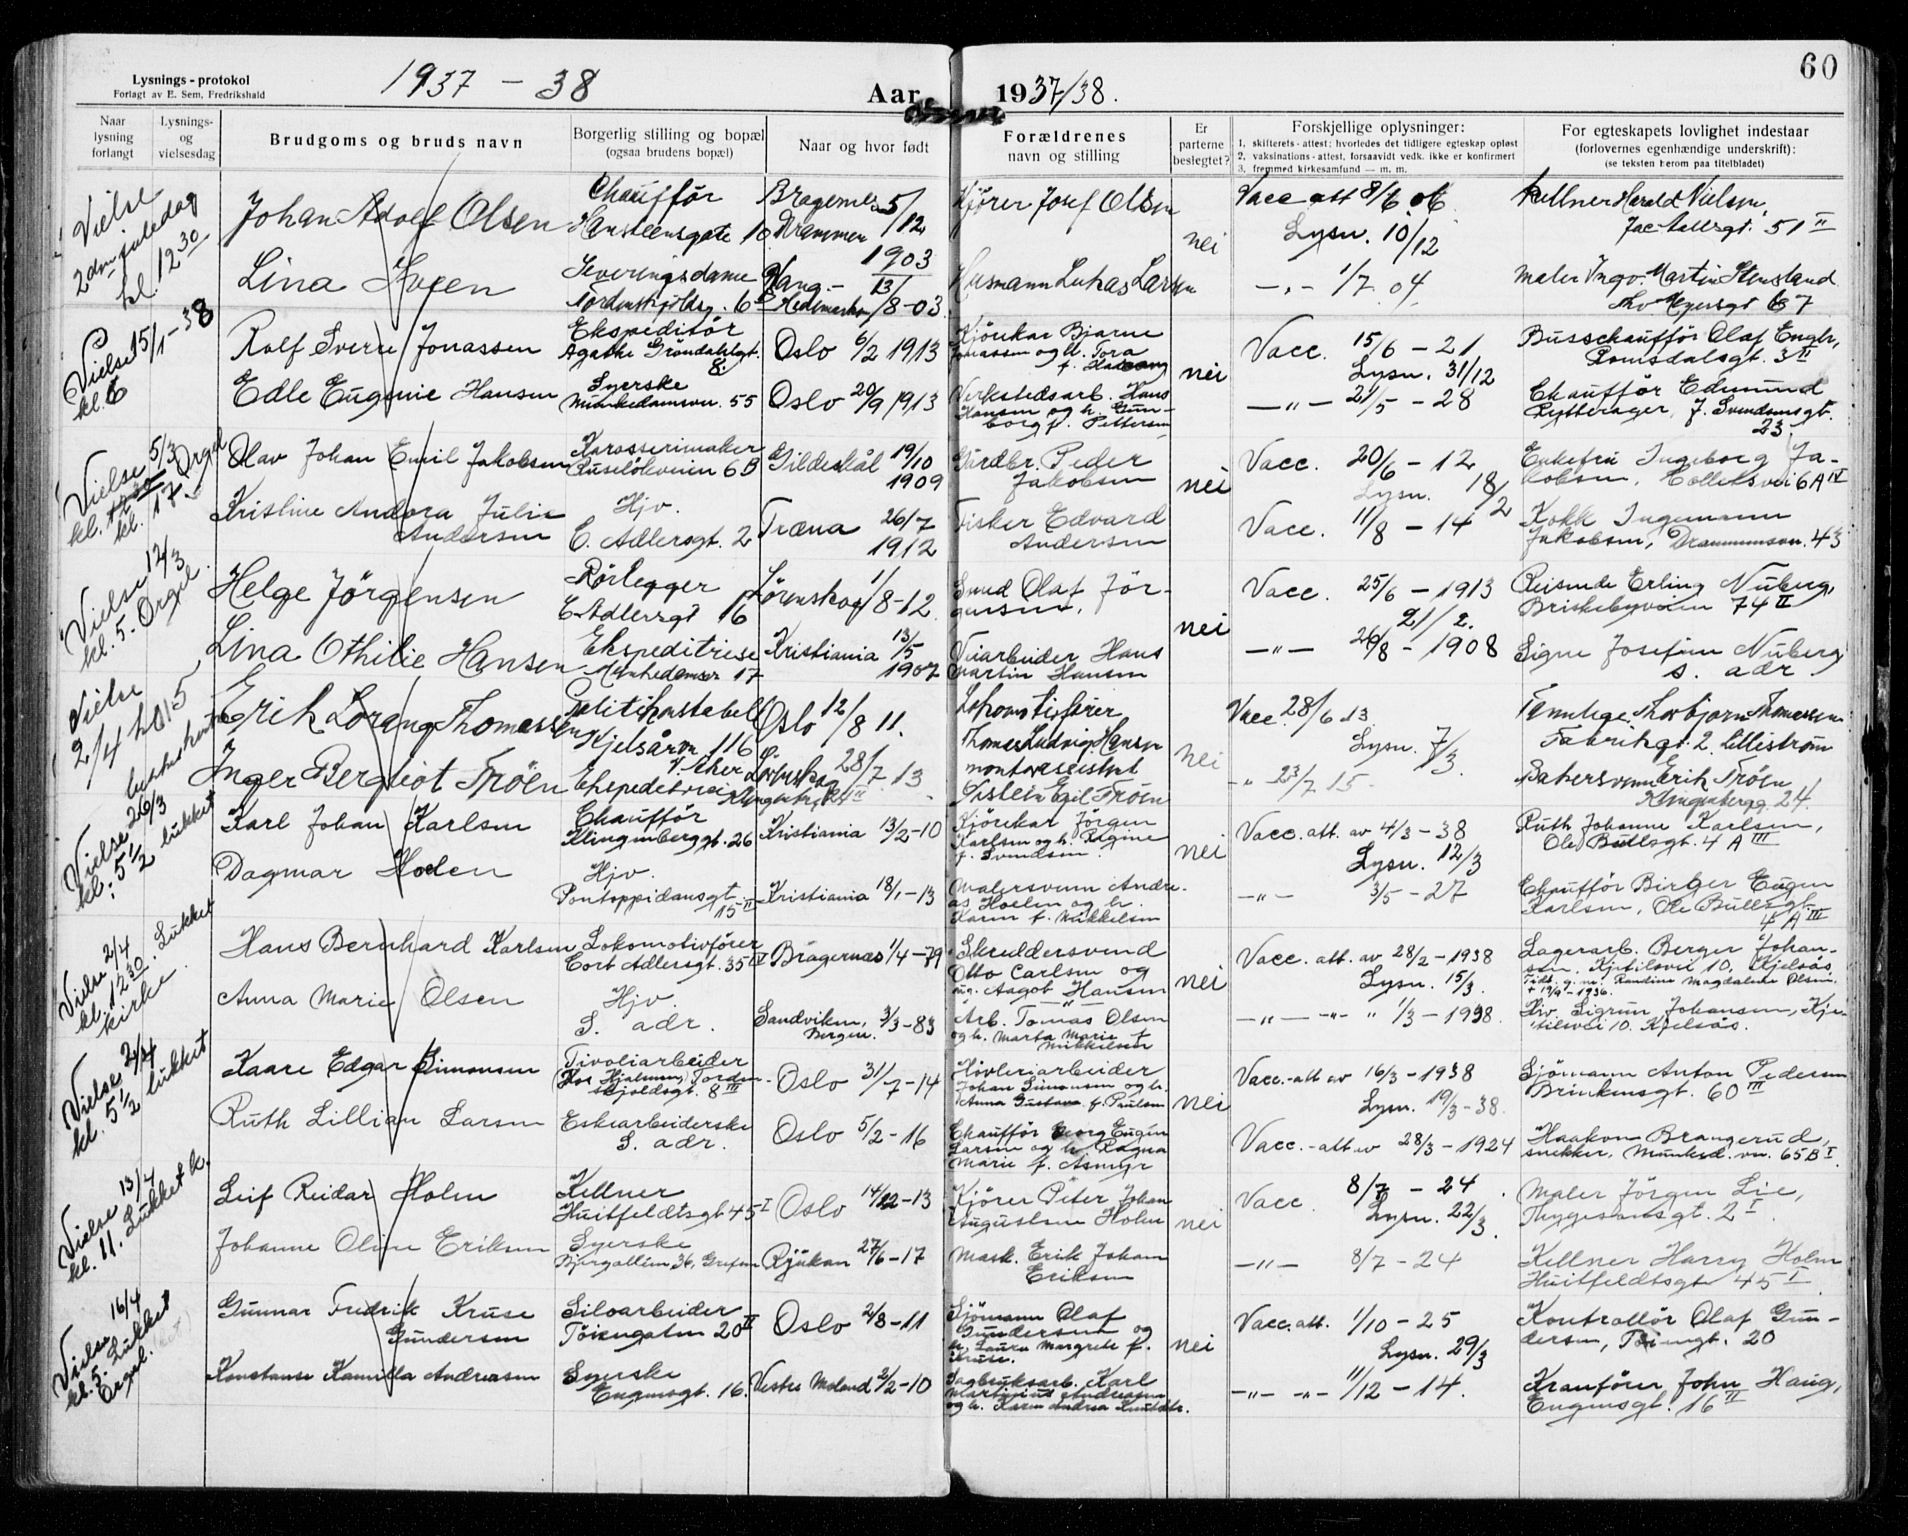 60
Lysnings-protokol
Forlagt av E. Sem, Fredrikshald
1937 - 38
Aar
1937/38.
Naar lysning forlangt
Lysnings- og vielsesdag
Brudgoms og bruds navn
Borgerlig stilling og bopæl
(ogsaa brudens bopæl)
Naar og hvor født
Forældrenes
navn og stilling
Er parterne beslegtet?
Forskjellige oplysninger:
1. skifterets-attest; hvorledes det tidligere egteskap opløst
2. vaksinations-attest, forsaavidt vedk. ikke er konfirmert
3. fremmed kirkesamfund — m. m.
For egteskapets lovlighet indestaar
(forlovernes egenhændige underskrift):
(se teksten herom paa titelbladet)
Vielse
2den juledag
kl. 12 30
Johan Adolf Olsen
Chauffør
Hansteensgate 10
Bragernes 5/12
Drammen
1903
Kjører Josef Olsen
nei
Vacc att 8/6 06
Lysn. 10/12
Kellner Harald Nielsen,
Jac Aallsgt. 51 II
Lina
Serveringsdame
Tordenskjoldsg. 6
Vang - 13/8-03
Hedemarken
Husmann Lukas Larsen
-"- 1/7 04
Maler Ingv. Martin Stensland
Thv Meyersgt 67
Vielse 15/1-38
kl. 6
Rolf Sverre Jonassen
Ekspeditør
Agathe Grøndahlgt. 8.
Oslo 6/2 1913
Kjørekar Bjarne
Jonassen og h. Tora
nei
Vacc. 15/6 - 21
Lysn. 31/12
Busschauffør Olaf Engbr,
Romsdalsgt. 3 II
Edle Eugenie Hansen
Syerske
Munkedamsvn. 55
Oslo 20/9 1913
Verkstedsarb. Hans
Hansen og h. Gun-
borg f. Pettersen
-"- 21/5 - 28
Chauffør Edmund
Rytterager, J. Svendsensgt.
23
Vielse 5/3
kl. 17. Orgel
Olav Johan Emil Jakobsen
Karosserimaker
Ruseløkveien 6 B
Gildeskål 19/10
1909
Gårdbr. Peder
Jakobsen
nei
Vacc. 20/6 - 12
Lysn. 18/2
Enkefru Ingeborg Ja-
kobsen, Colletsvei 6 A IV
Kristine Andora Julie
Andersen
Hjv.
C. Adlersgt. 2
Træna 26/7
1912
Fisker Edvard
Andersen
Vacc. 11/8 - 14
Kokk Ingemann
Jakobsen, Drammensvn. 43
Vielse 12/3
kl. 5. Orgel.
Helge Jörgensen
Rörlegger
C Adlersgt 16
Lörenskog 1/8-12
Smed Olaf Jör-
gensen.
nei
Vacc. 25/6 - 1913
21/2.
Reisende Erling Nuberg,
Briskebyveien 74 II
Lina Othilie Hansen
Ekspeditrise
Munkedamsv 17
Kristiania 13/5
1907
Veiarbeider Hans
Martin Hansen
-"- 26/8 - 1908
Signe Josefine Nuberg
s. adr
Vielse
2/4 kl 5
Erik Lorang Thomassen
Politikonstabel
Kjelsåsvn 116
V. Aker
Oslo 12/8 11.
Lokomotivfører
Thomas Ludvig Hansen
nei
Vacc. 28/6 13.
Lysn. 7/3.
Thorbjørn Thomassen
Fabrikgt. 2, Lillestrøm
Inger Bergliot Tröen
Ekspeditrise
28/7 13
montørassistent
Øistein Egil Tröen
" 23/7 15.
Bakersvenn Erik Tröen
Klingenbergg. 24.
Vielse 26/3
kl: 5 1/2 lukket
Karl Johan Karlsen
Chaufför
Klingenberggt. 26
Kristiania 13/2-10
Kjörekar Jörgen
Karlsen og h. Regine
f. Svendsen.
nei
Vacc. att. av 4/3 - 38
Lysn. 12/3
Ruth Johanne Karlsen,
Ole Bullsgt. 4 A III
Dagmar Hoelen
Hjv.
Pontoppidansgt.
15 II
Kristiania 18/1-13
Malersvenn Andre-
as Hoelen og h.
Karen f. Mikkelsen
-"- 3/5 - 27
Chauffør Birger Eugen
Karlsen, Ole Bullsgt
4 A III
Vielse 2/4
kl. 12 30. Lukket
kirke.
Hans Bernhard Karlsen
Lokomotivförer
Cort Adlersgt. 35 IV
Bragernes 1/4-79
Skreddersvend
Otto Carlsen og
ug. Aagot Hansen
nei
Vacc. att. av 28/2 - 1938
Lysn. 15/3.
Lagerarb. Berger Johan-
sen. Kjetilsvei 10, Kjelsås
Tidl. g. m. Randine Magdalene Olsen.
Anna Marie Olsen
Hjv.
S. adr.
Sandviken, 3/3-83
Bergen.
Arb. Tomas Olsen
og h. Marta Marie
Mikkelsen
-"- -"- " 1/3 - 1938.
Frv. Sigrun Johansen, Kje-
tilsvei 10. Kjelsås.
Vielse 2/4
kl. 5 1/2 lukket
Kaare Edgar Simonsen
Tivoliarbeider
Hos Hjalmsen, Torden-
skjoldsgt. 8 III
Oslo 31/7-14
Høvleriarbeider
Johan Simonsen og h.
Anna Gustava f. Paulsen
nei
Vacc.-att av 16/3 - 1938
Lysn. 19/3-38.
Sjömann Anton Pedersen
Brinkensgt. 60 III
Ruth Lillian Larsen
Eskearbeiderske
S. adr.
Oslo 5/2-16
Chauffør Georg Eugen
Larsen og h. Ragna
Marie f. Asmyr
Vacc.-att av 28/3-1924
Haakon Brangerud,
snekker, Munked. vn. 65 B I
Vielse 13/4
kl. 11. Lukket k.
Leif Reidar Holm
Kellner
Huitfeldtsgt 45 I
Oslo 14/12-13
Kjörer Peter Johan
Augustsen Holm
nei
Vacc 8/7 - 24.
Lysn. 22/3.
Maler Jörgen Lie,
Thygesensgt. 2 I.
Johanne Oline Eriksen
Syerske
Bjergallèen 36, Grefsen
Rjukan 27/6-17
Mask. Erik Johan
Eriksen
-"- 8/7-24
Kellner Harry Holm
Huitfeldtsgt 45 I
Vielse 16/4
kl. 5. Lukket
Orgel.
Gunnar Fredrik Kruse
Gundersen
Siloarbeider
Töiengaten 20 II
Oslo 2/8-11
Sjömann Olaf
Gundersen og
h. Laura Margrete f.
Kruse.
nei
Vacc. att. 1/10 - 25
Lysn. 29/3
Kontrollör Olaf Gun-
dersen, Töiengt. 20
Konstanse Kamilla Andreasen
Syerske
Engensgt. 16.
Vestre Moland 2/2-10
Sagbruksarb. Karl
Martinius Andreasen
og h. Karen Andrea Knutsdtr.
-"- -"- 11/12 - 14.
Kranförer John Haug,
Engensgt. 16 II